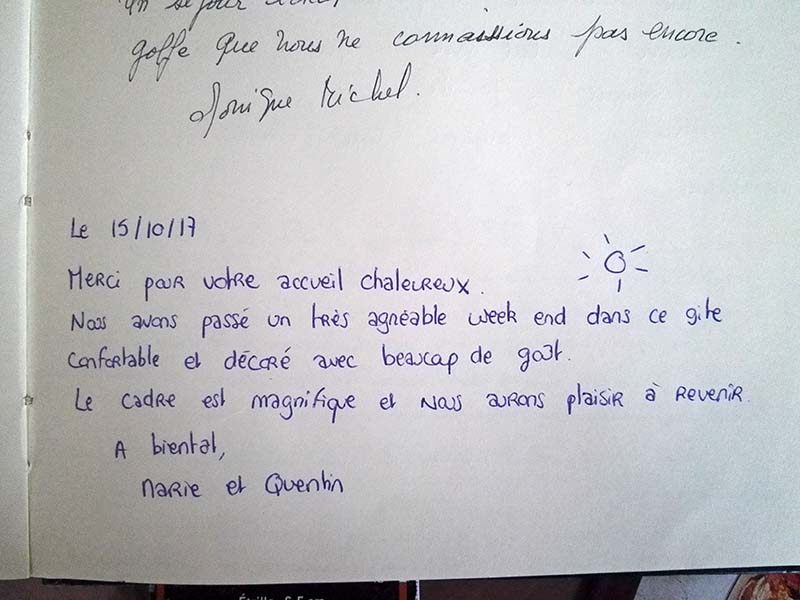 un séjour
golfe que nous ne connaissions pas encore.
Monique Michel.
Le 15/10/17
Merci pour votre accueil chaleureux.
Nous avons passé un très agréable week end dans ce gite
confortable et décoré avec beaucoup de goût.
Le cadre est magnifique et nous aurons plaisir à revenir.
A bientôt,
Marie et Quentin